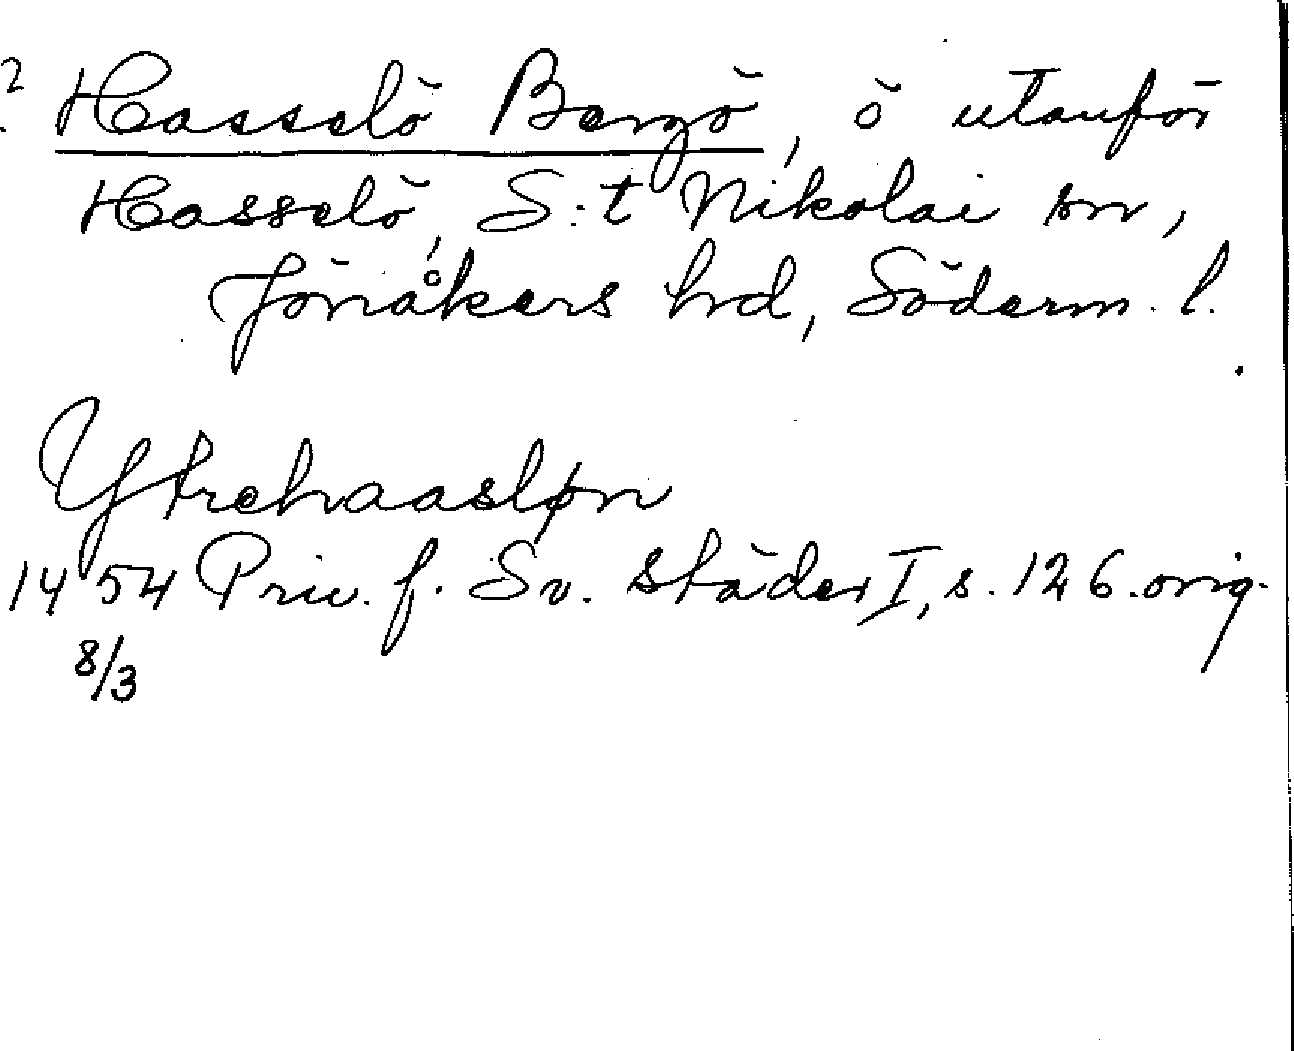 ? Hasselö Bergö, ö utanför
Hasselö, S:t Nikolai sn,
Jönåkers hrd, Söderm. l.
Ytrehaasløn
1454 Priv. f. Sv. städer I, s. 126. orig.
8/3